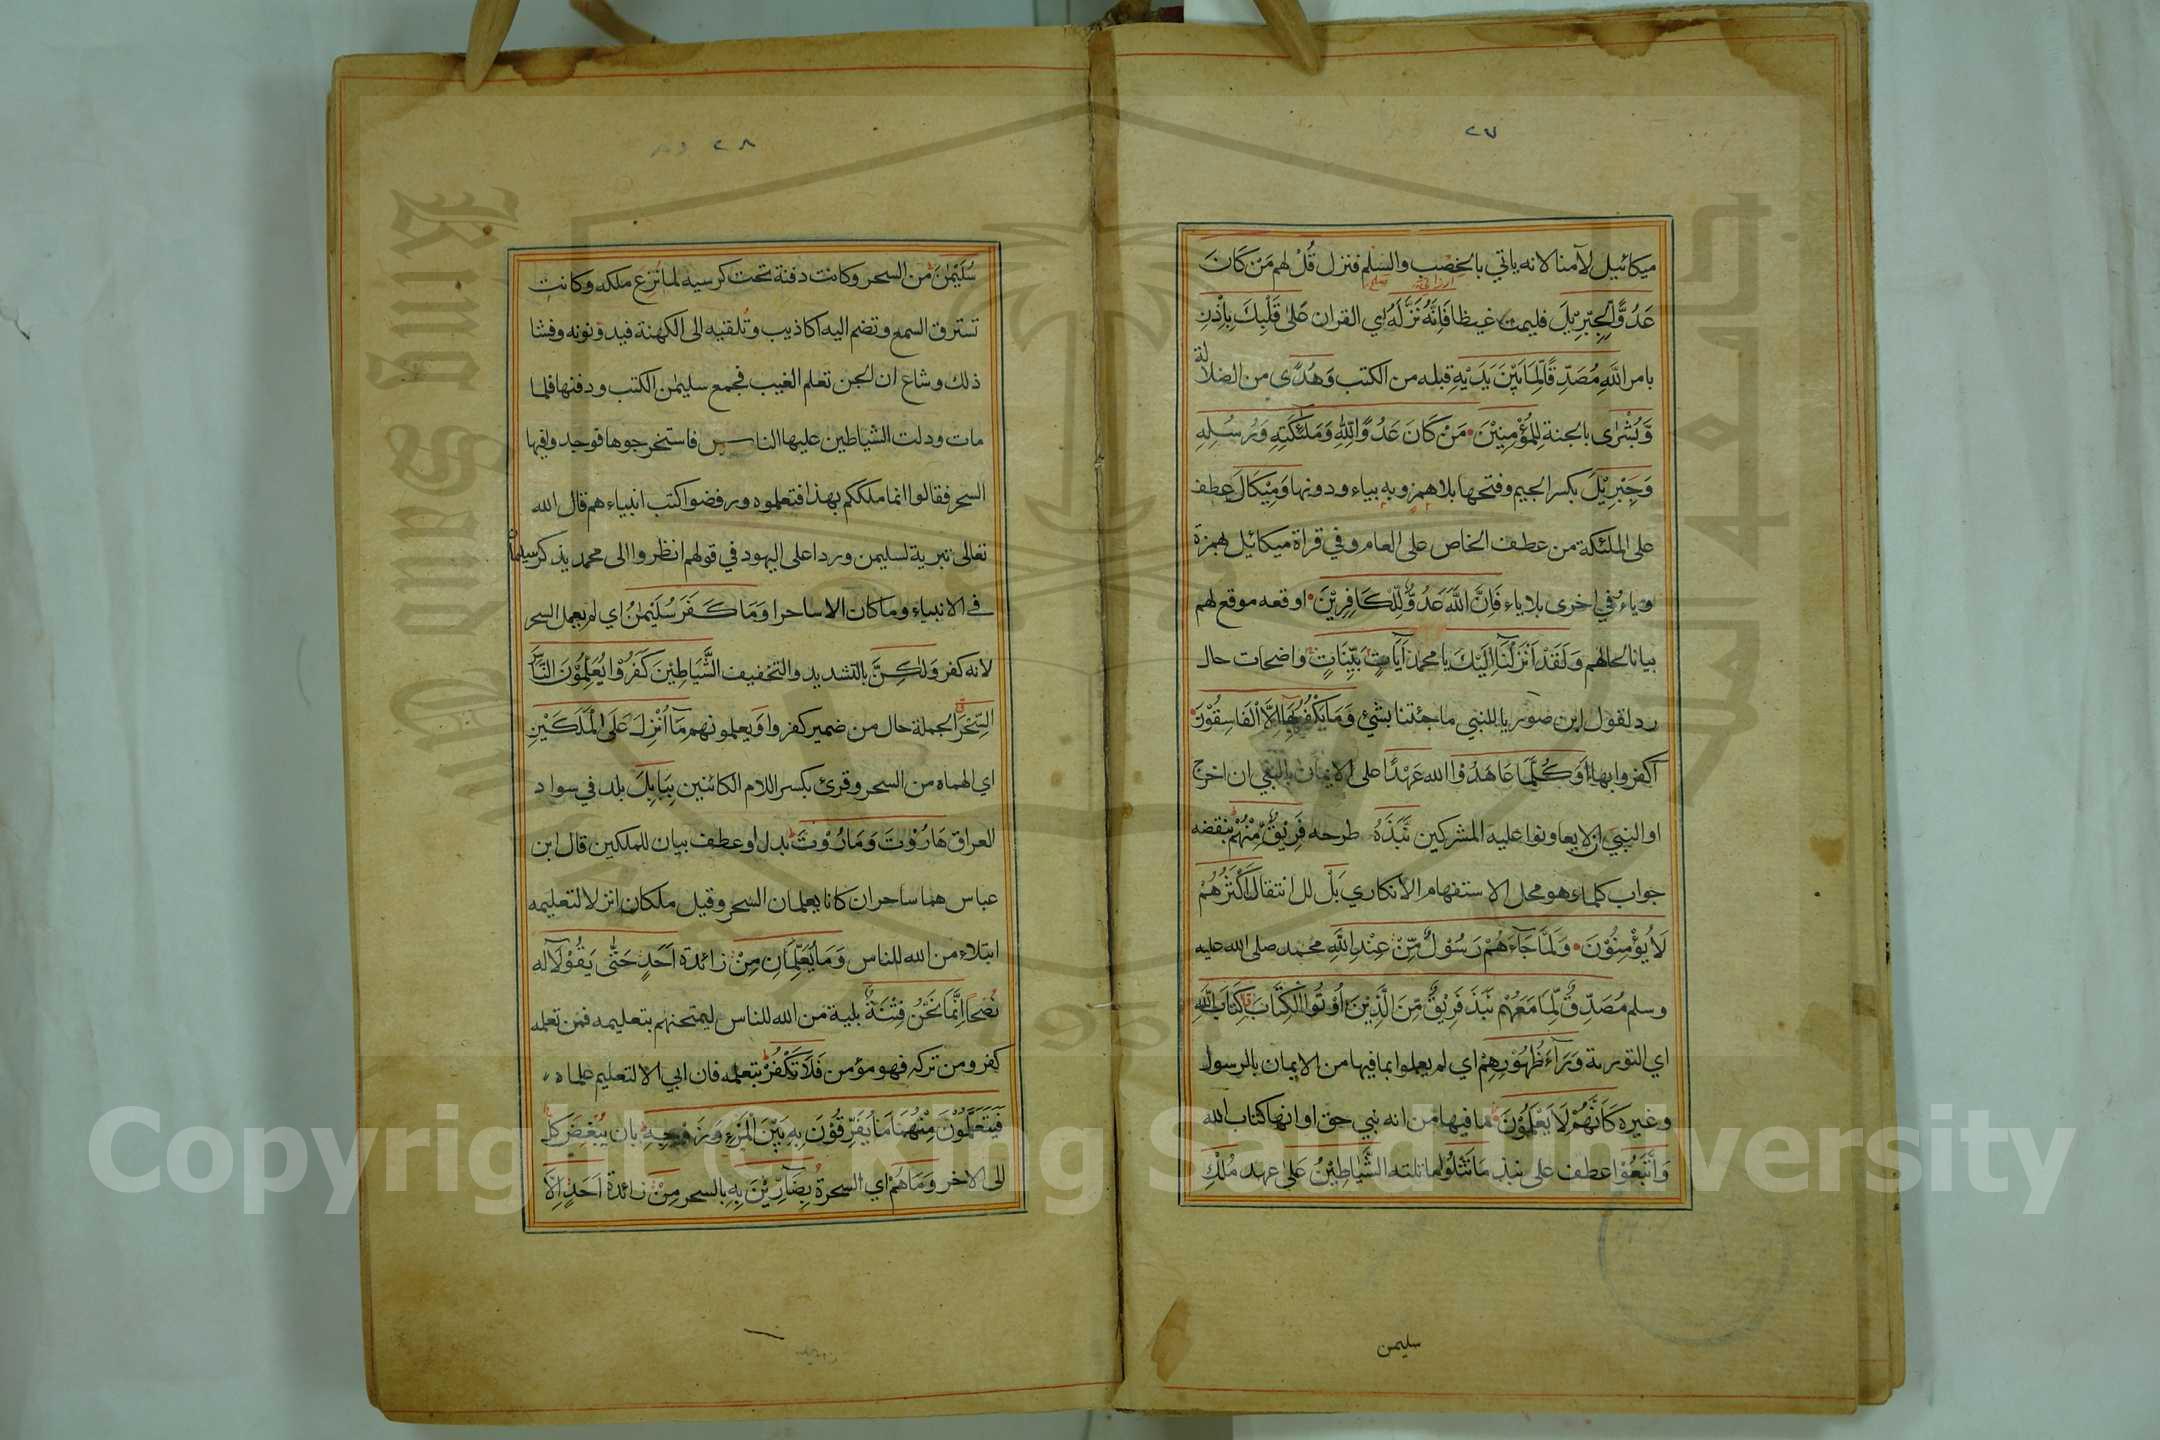 ٢٧
ميكائيل لآمنا لانه ياتي بالخصب والسلم فنزل قُلْ لهم مَنْ كَانَ
عَدُوًّا لِجِبْرِيْلَ فليمت غيظا فَاِنَّهٗ نَزَّلَهٗ اي القران عَلٰى قَلْبِكَ بِاِذْنِ
بامر اللّٰهِ مُصَدِّقًا لِمَا بَيْنَ يَدَيْهِ قبله من الكتب وَهُدًى من الضلالة
وَّبُشْرٰى بالجنة لِلْمُؤْمِنِيْنَ مَنْ كَانَ عَدُوًّا لِلّٰهِ وَمَلٰئِكَتِهٖ وَرُسُلِهٖ
وَجِبْرِيْلَ بكسر الجيم وفتحها بلا همز وبه بياء ودونها وَمِيْكَالَ عطف
على الملئكة من عطف الخاص على العام وفي قراة ميكائيل بهمزة
وياء وفي اخرى بلا ياء فَاِنَّ اللّٰهَ عَدُوٌّ لِّلْكَافِرِيْنَ اوقعه موقع لهم
بيانا لحالهم وَلَقَدْ اَنْزَلْنَا اِلَيْكَ يا محمد آيَاتٍ بَيِّنَاتٍ واضحات حال
رد لقول ابن صوريا للنبي ما جئتنا بشئ وَمَا يَكْفُرُ بِهَا اِلَّا الْفَاسِقُوْنَ
اكفروا بها اَوَكُلَّمَا عَاهَدُوْا الله عَهْدًا على الايمان بالنبي ان اخرج
او النبي ان لا يعاونوا عليه المشركين نَّبَذَهٗ طرحه فَرِيْقٌ مِّنْهُمْ بنقضه
جواب كلما وهو محل الاستفهام الانكاري بَلْ للانتقال اَكْثَرُهُمْ
لَا يُؤْمِنُوْنَ وَلَمَّا جَآءَهُمْ رَسُوْلٌ مِّنْ عِنْدِ اللّٰهِ محمد صلى الله عليه
وسلم مُصَدِّقٌ لِّمَا مَعَهُمْ نَبَذَ فَرِيْقٌ مِّنَ الَّذِيْنَ اُوْتُوا الْكِتَابَ كِتَابَ اللّٰهِ
اي التورىة وَرَآءَ ظُهُوْرِهِمْ اي لم يعملوا بما فيها من الايمان بالرسول
وغيره كَاَنَّهُمْ لَا يَعْلَمُوْنَ ما فيها من انه نبي حق او انها كتاب الله
وَاتَّبَعُوْا عطف على نبذ مَا تَتْلُوْا ما تلته الشَّيَاطِيْنُ عَلٰى عهد مُلْكِ
سليمن
٢٨
سُلَيْمٰنَ من السحر وكانت دفنة تحت كرسيه لما نزع ملكه وكانت
تسترق السمع وتضم اليه اكاذيب وتلقيه الى الكهنة فيدونونه وفشا
ذلك وشاع ان الجن تعلم الغيب فجمع سليمن الكتب ودفنها فلما
مات ودلت الشياطين عليها الناس فاستخرجوها فوجدوا فيها
السحر فقالوا انما ملككم بهذا فتعلموه ورفضوا كتب انبياءهم قال الله
تعالى تبرية لسليمن وردا على اليهود في قولهم انظروا الى محمد يذكر سليمان
في الانبياء وما كان الا ساحرا وَمَا كَفَرَ سُلَيْمٰنُ اي لم يعمل السحر
لانه كفر وَلٰكِنَّ بالتشديد والتخفيف الشَّيَاطِيْنَ كَفَرُوْا يُعَلِّمُوْنَ النَّاسَ
السِّحْرَ الجملة حال من ضمير كفروا وَ يعلمونهم مَآ اُنْزِلَ عَلَى الْمَلَكَيْنِ
اي الهماه من السحر وقرئ بكسر اللام الكائنين بِبَابِلَ بلد في سواد
العراق هَارُوْتَ وَمَارُوْتَ بدل او عطف بيان للملكين قال ابن
عباس هما ساحران كانا يعلمان السحر وقيل ملكان انزلا لتعليمه
ابتلاء من الله للناس وَمَا يُعَلِّمَانِ مِنْ زائدة اَحَدٍ حَتّٰى يَقُوْلَآ له
نصحا اِنَّمَا نَحْنُ فِتْنَةٌ بلية من الله للناس ليمتحنهم بتعليمه فمن تعلمه
كفر ومن تركه فهو مؤمن فَلَا تَكْفُرْ بتعلمه فان ابى الا لتعليم علماه
فَيَتَعَلَّمُوْنَ مِنْهُمَا مَا يُفَرِّقُوْنَ بِهٖ بَيْنَ الْمَرْءِ وَزَوْجِهٖ بان يبغض كل
الى الاخر وَمَا هُمْ اي السحرة بِضَآرِّيْنَ بِهٖ بالسحر مِنْ زائدة اَحَدٍ اِلَّا
Copyright © King Saud University